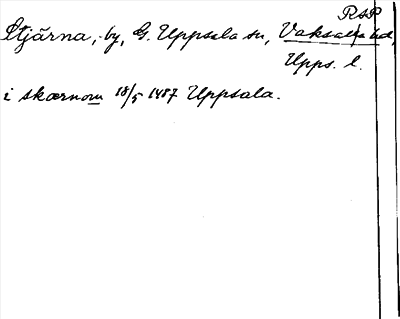 RSP
Stjärna, by, G. Uppsala sn, Vaksala hd,
Upps. l.
i skærnom 18/5 1487 Uppsala.